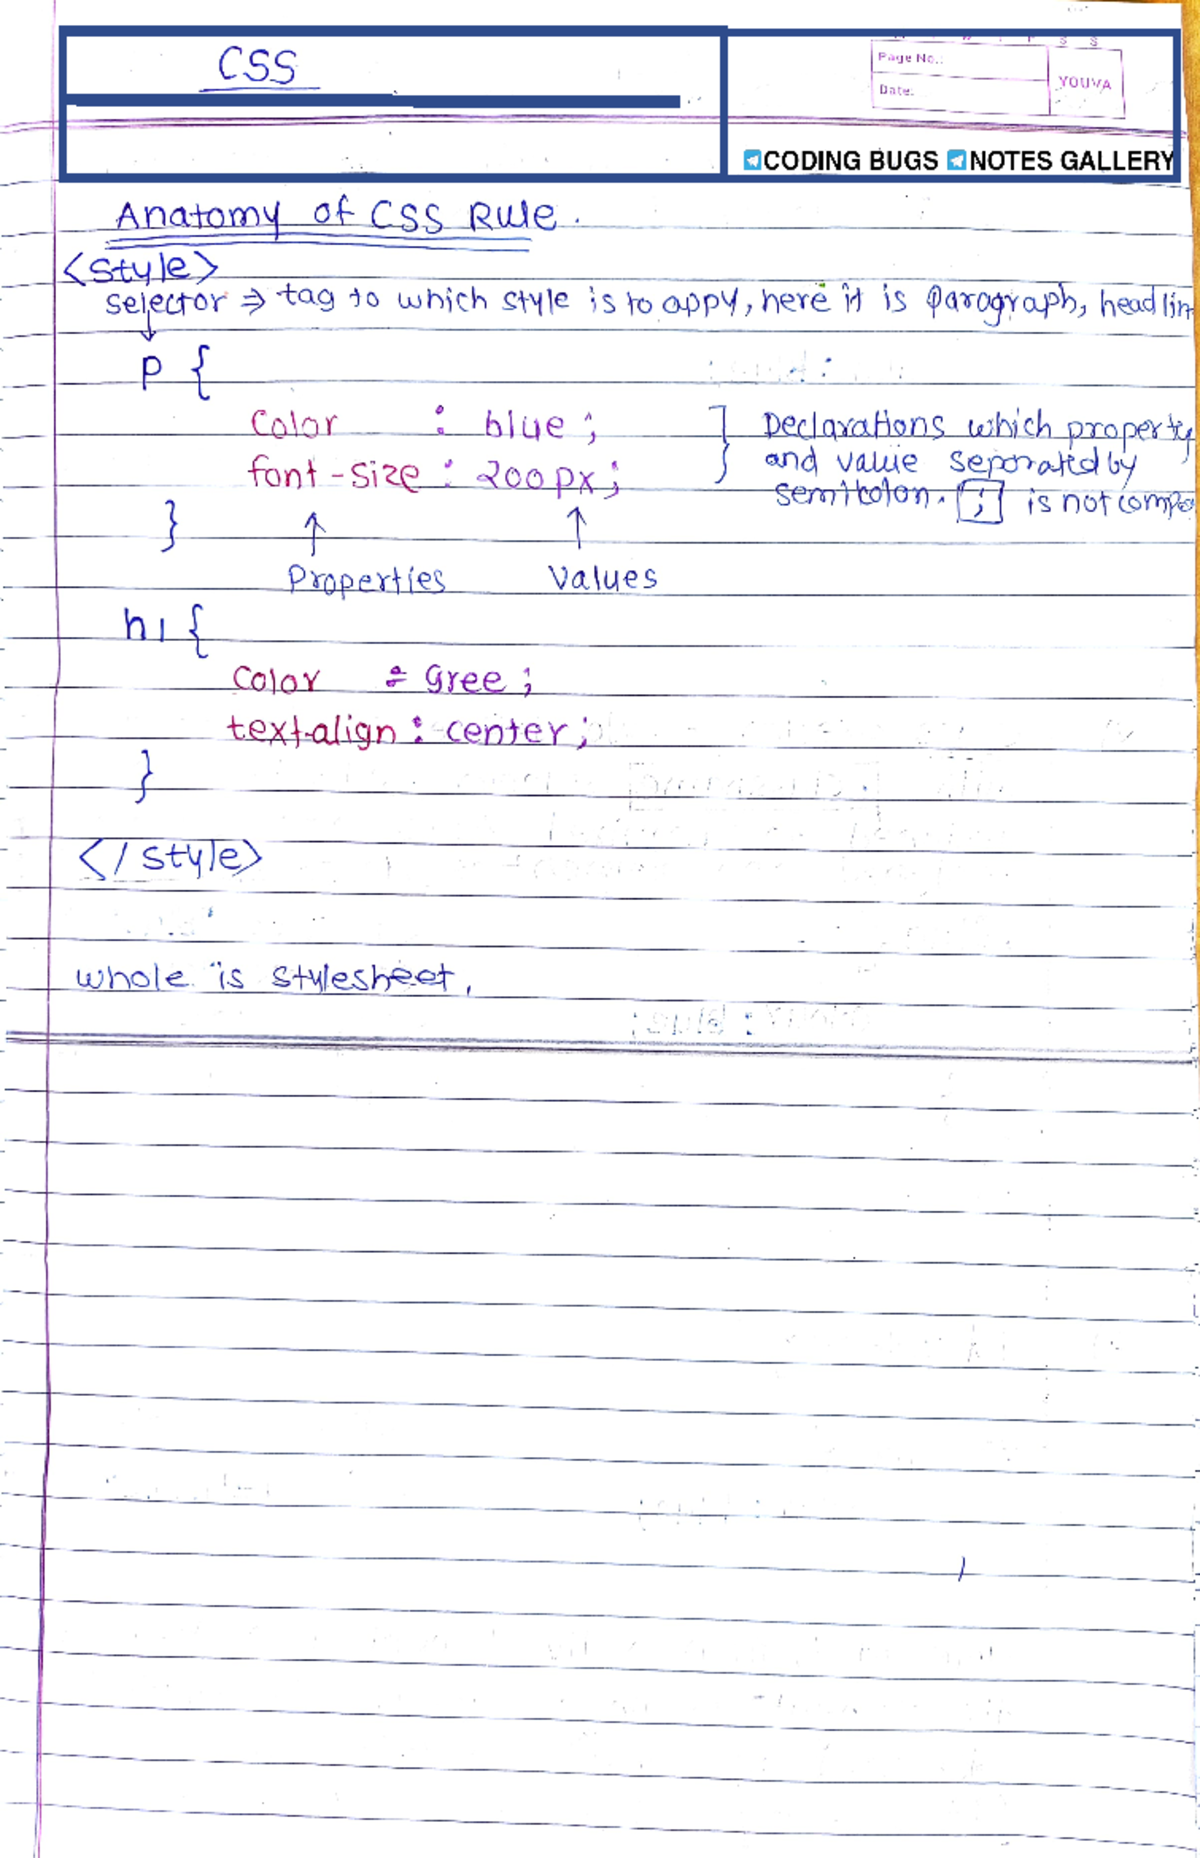 CSS
Page No.:
Date:
YOUVA
CODING BUGS NOTES GALLERY
Anatomy of CSS Rule.
<style>
selector ⇒ tag to which style is to appy, here it is paragraph, headlin
↓
p {
Color : blue ; } Declarations which property
font-size : 200px ; and value seperated by
semicolon. ; is not compe
}
↑ ↑
Properties Values
h1 {
Color : Gree ;
text-align : center ;
}
</style>
whole is stylesheet,